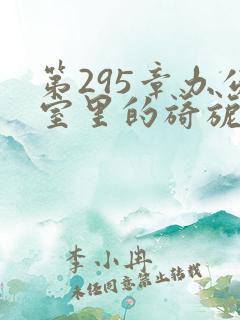 第295章办公
室里的旖旎
李小冉
未经同意禁止转载